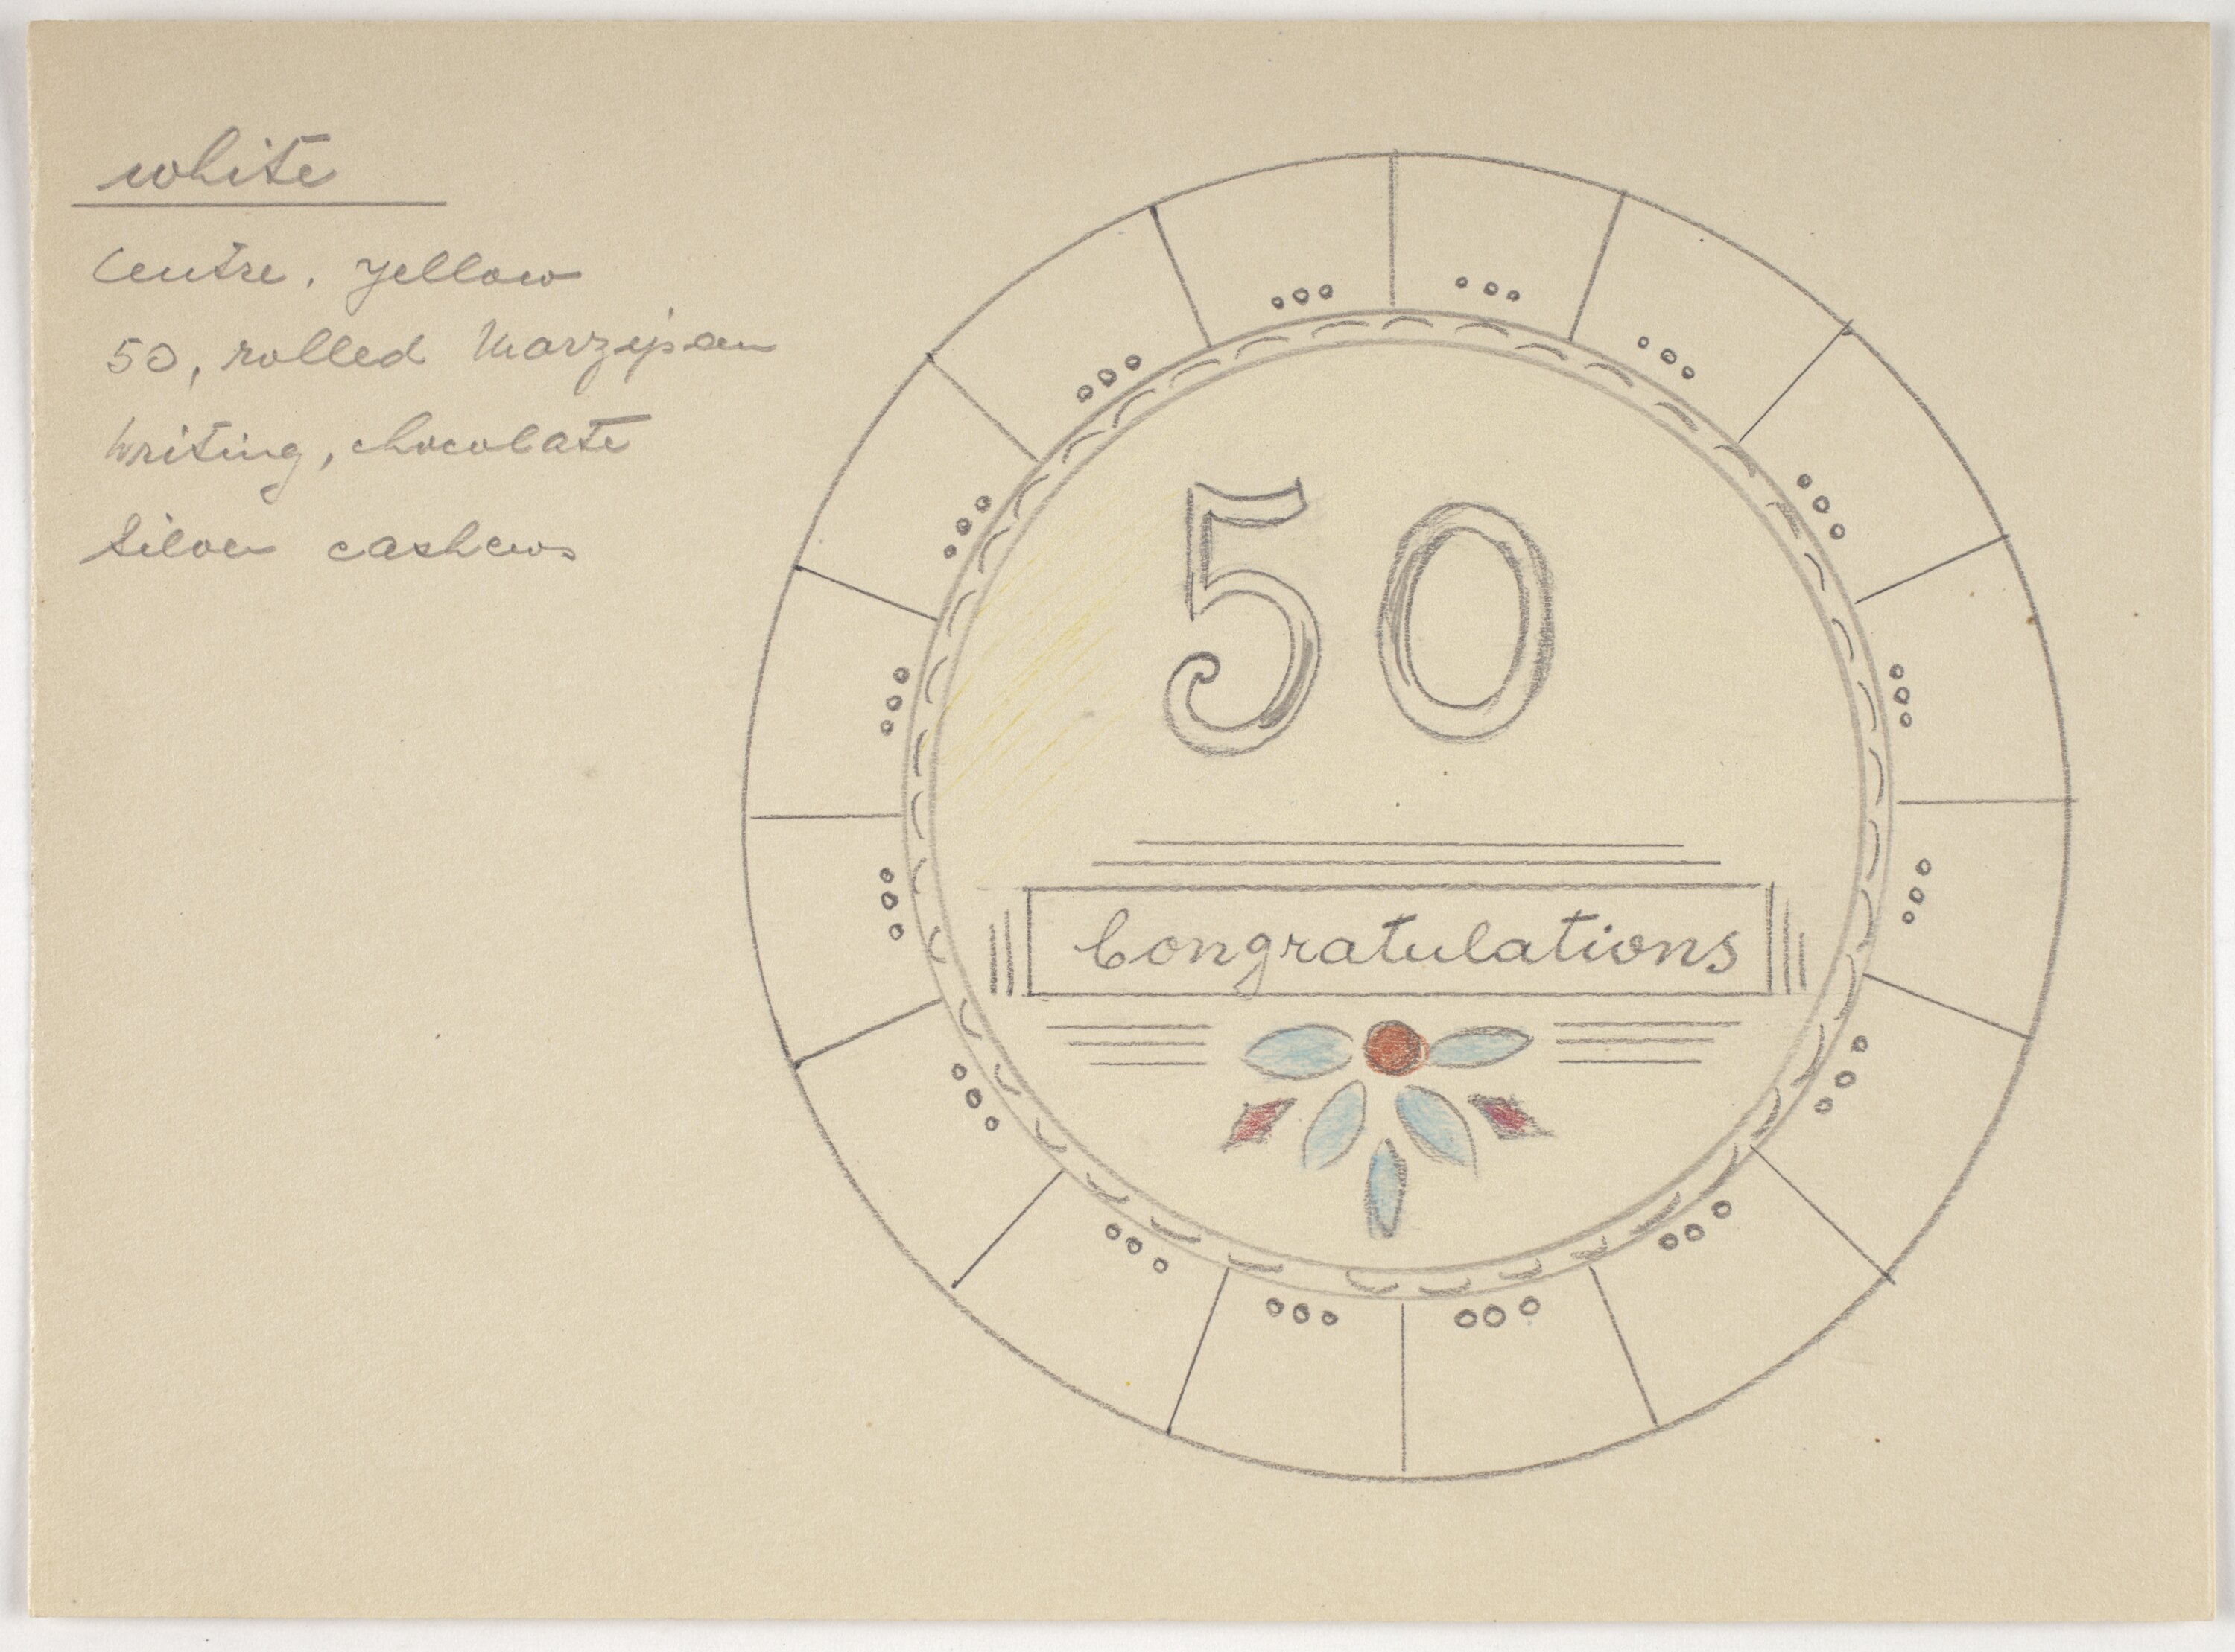 white
Centre, yellow
50, rolled Marzipan
Writing, chocolate
Silver cashews
50
Congratulations